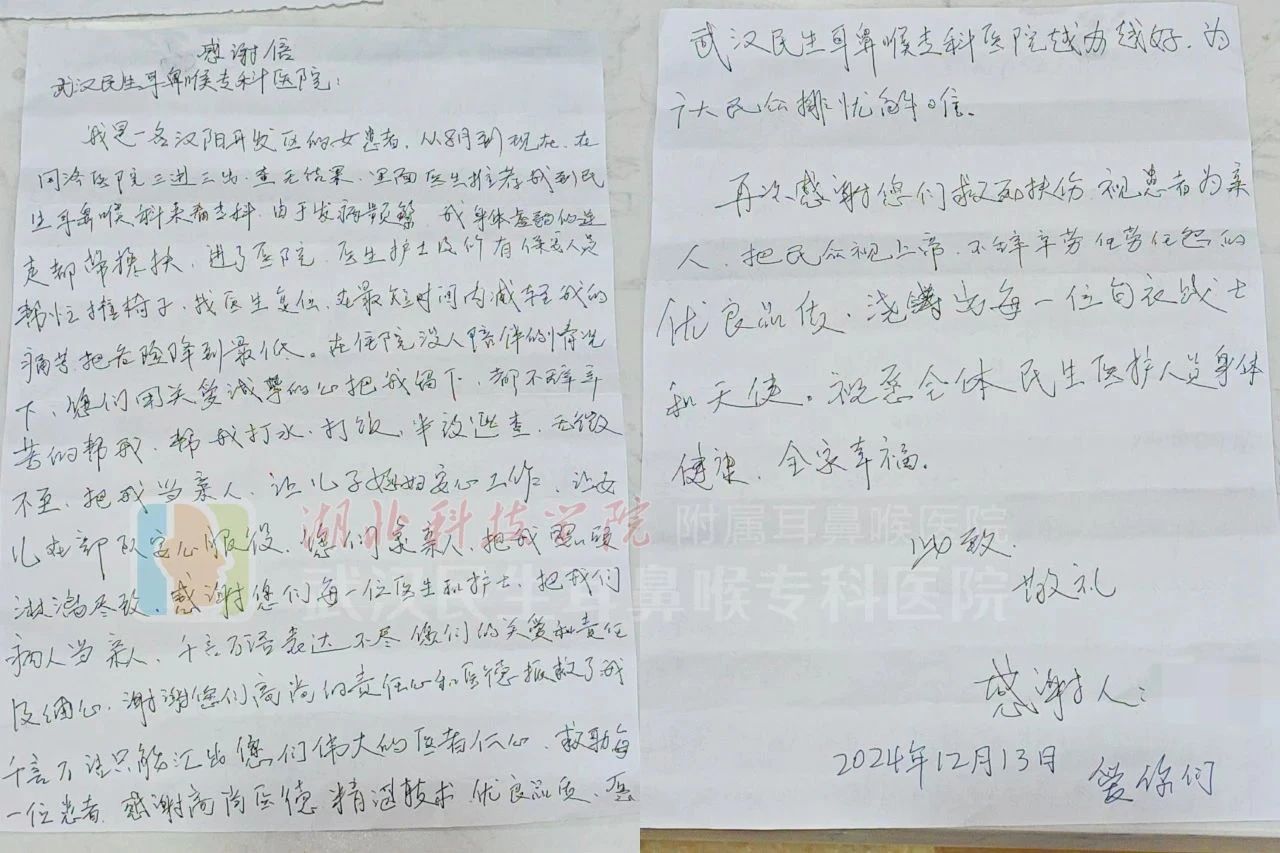 感谢信
武汉民生耳鼻喉专科医院:
我是一名汉阳开发区的女患者,从8月到现在,在
同济医院三进三出,查无结果,里面医生推荐我到民
生耳鼻喉科来看专科。由于发病频繁,我身体虚弱的连
走都需搀扶,进了医院,医生护士及所有保安人员
帮忙推椅子,找医生复位,在最短时间内减轻我的
痛苦把危险降到最低。在住院没人陪伴的情况
下,您们用关爱诚挚的心把我留下,都不辞辛
苦的帮我,帮我打水,打饭,半夜巡查,无微
不至,把我当亲人,让儿子媳妇安心工作,让女
儿在部队安心服役,您们是亲人,把我
淋漓尽致,感谢您们每一位医生和护士,把我们
病人当亲人,千言万语表达不尽您们的关爱和责任
及细心,谢谢您们高尚的责任心和医德拯救了我
千言万语只能汇出您们伟大的医者仁心,救助每
一位患者,感谢高尚医德,精湛技术,优良品质,愿
武汉民生耳鼻喉专科医院越办越好,为
广大民众排忧解难。
再次感谢您们救死扶伤,视患者为亲
人,把民众视上帝,不辞辛劳任劳任怨的
优良品质,浇铸出每一位白衣战士
和天使。祝愿全体民生医护人员身体
健康,全家幸福。
此致
敬礼
感谢人:
2024年12月13日
爱你们
湖北科技学院 附属耳鼻喉医院
武汉民生耳鼻喉专科医院